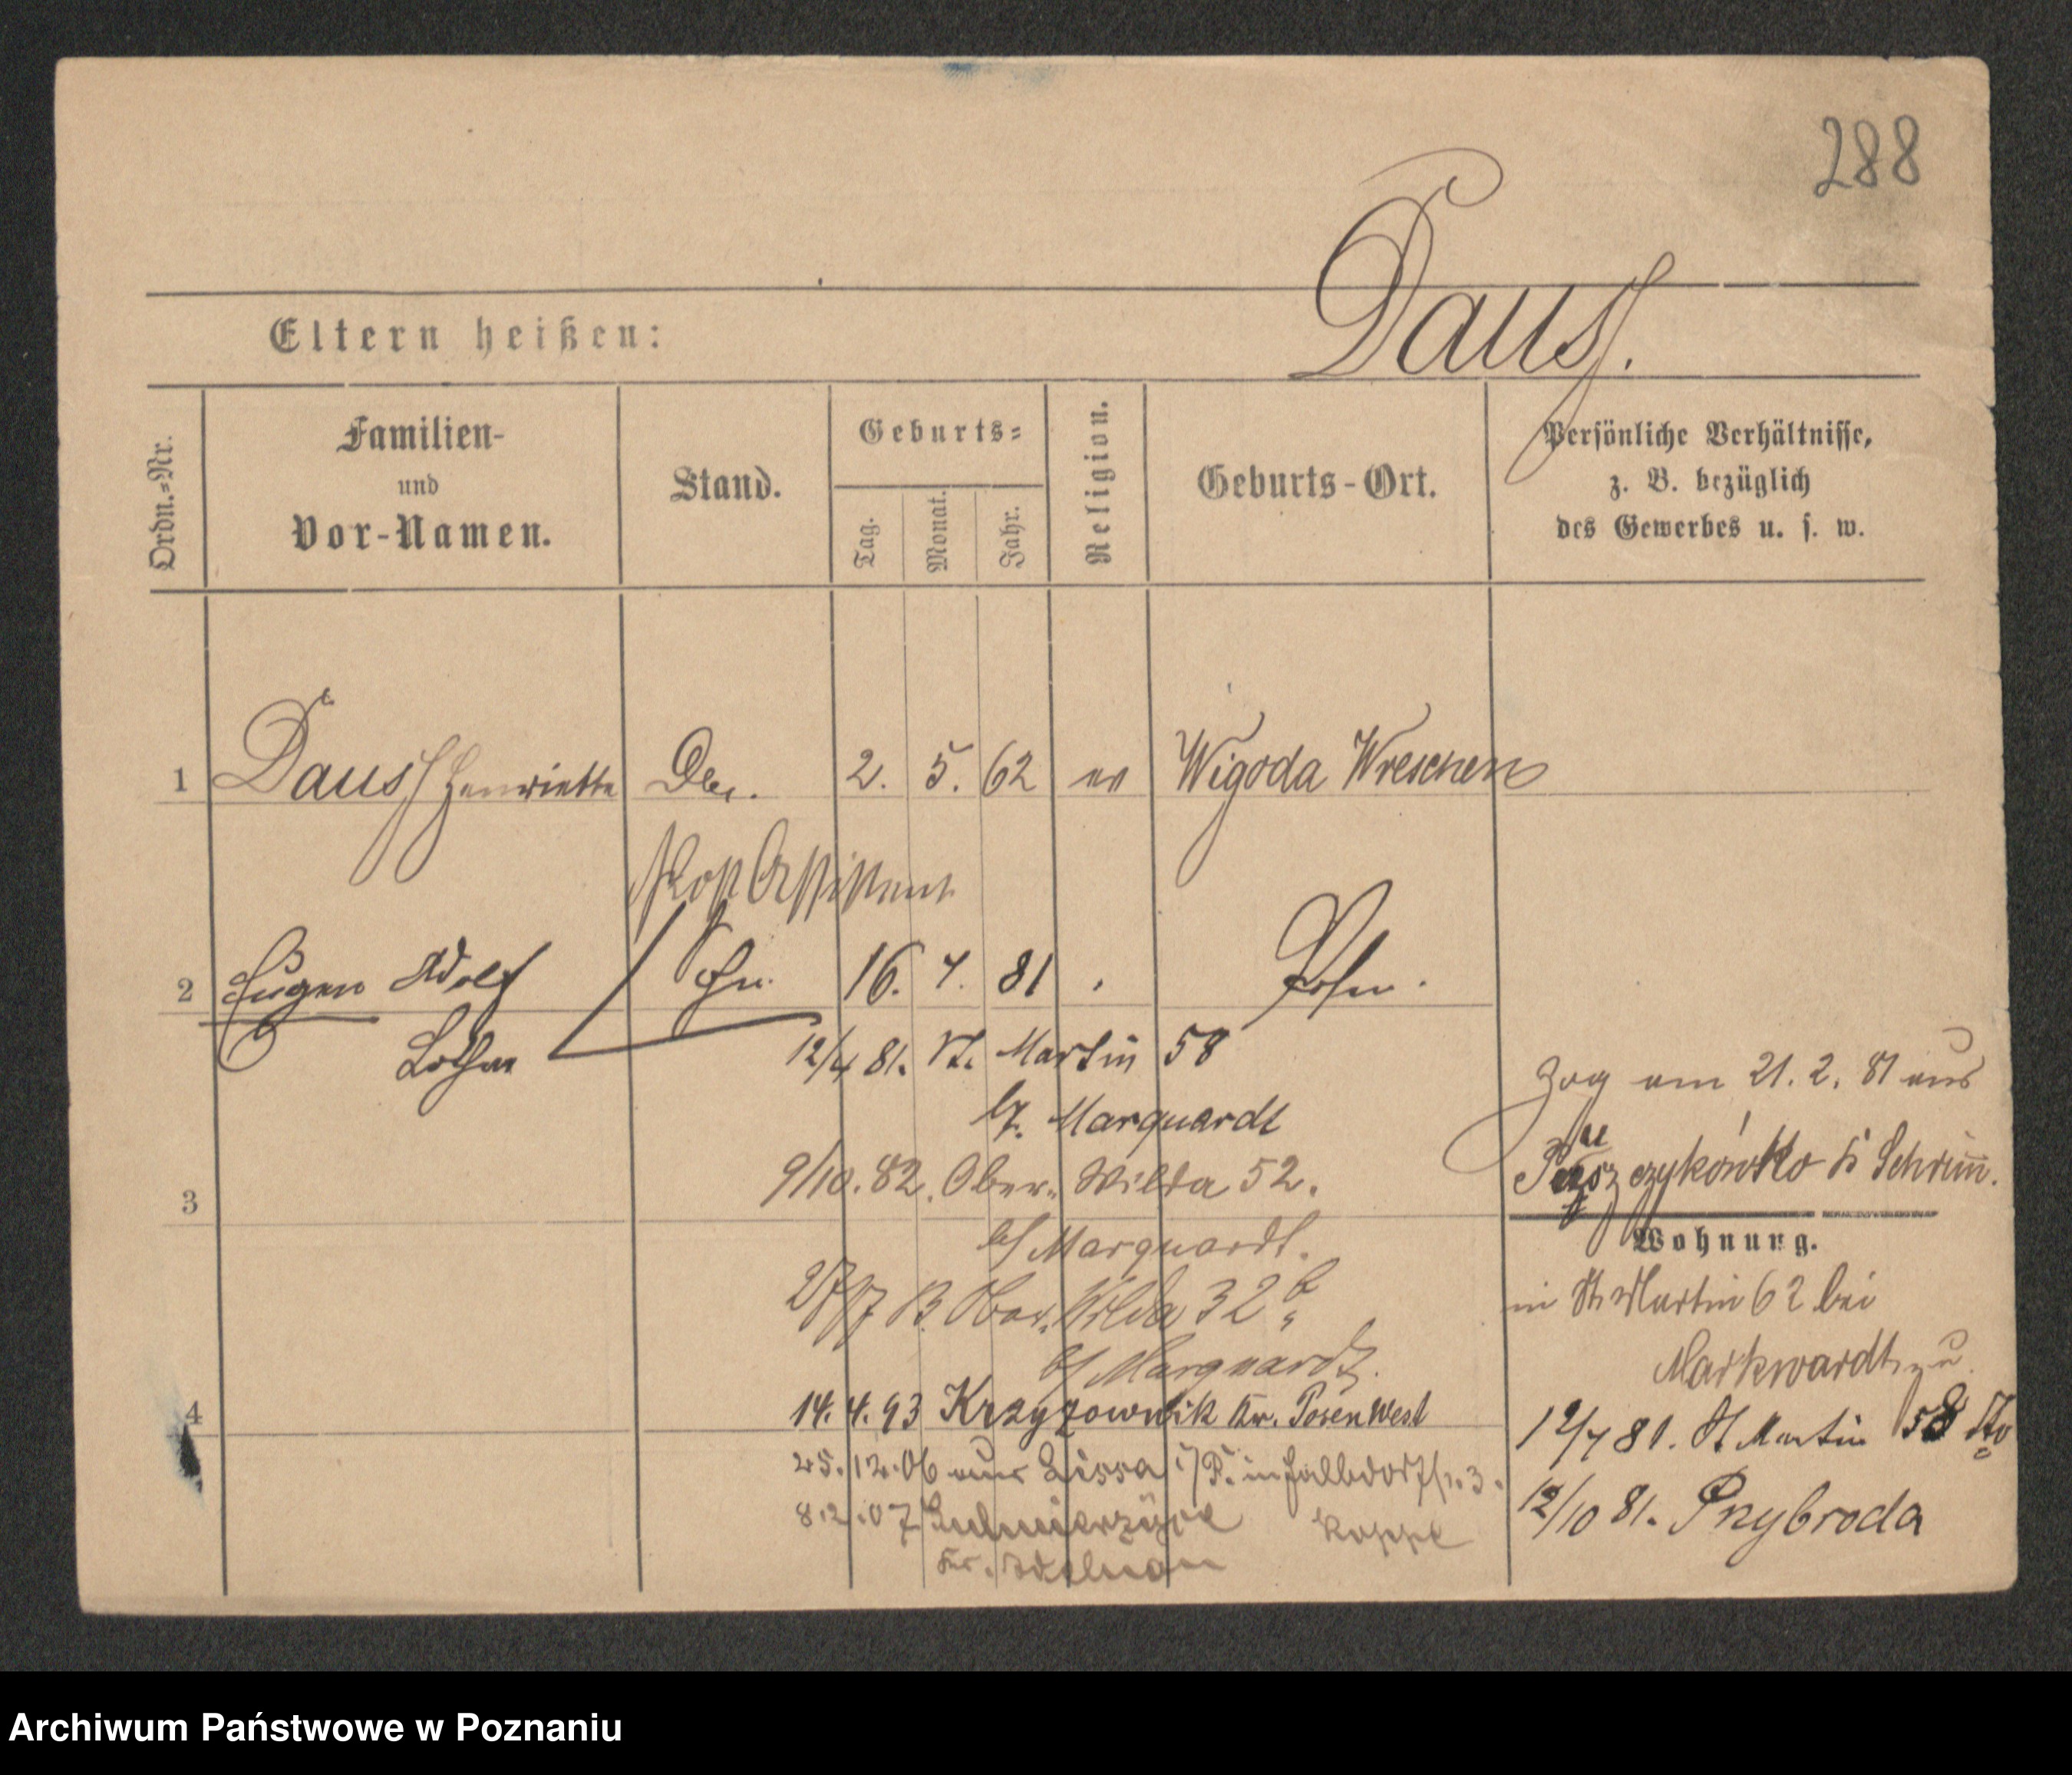 288
Dauß.
Eltern heißen:
Ordn.=Nr.
Familien-
und
Vor-Namen.
Stand.
Geburts=
Tag.
Monat.
Jahr.
Religion.
Geburts-Ort.
Persönliche Verhältnisse,
z. B. bezüglich
des Gewerbes u. s. w.
1 Dauß Henriette 2. 5. 62 ev Wigoda Wreschen
Post Assistent
2 Eugen Adolf 16. 4. 81 Posen.
Lothar
12/4 81. St. Martin 58
b. Marquardt
Zog am 21. 2. 81 aus
9/10. 82. Ober-Wilda 52.
Schrimm.
3
b/ Marquardt.
Wohnung.
Ober-Wilda 32 b
in St. Martin 62 bei
b/ Marquardt.
Markwardt
4
14. 4. 93 Krzyzownik Kr. Posen West
12/4 81. St Martin 58
25. 12. 06 aus Lissa i/P. in
12/10 81. Przybroda
8. 2. 07 Koppe
Kr. Adelnau
Archiwum Państwowe w Poznaniu